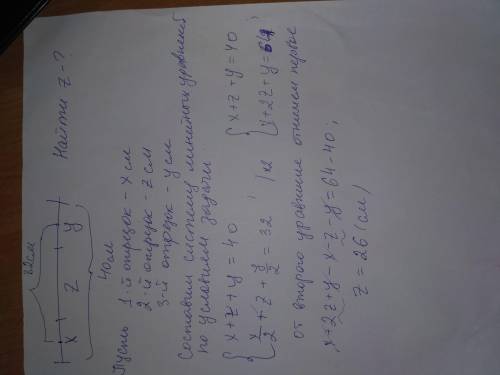 32см
x z y
40см
Найти z-?
Пусть 1-й отрезок - x см
2-й отрезок - z см
3-й отрезок - y см
Составим систему линейных уравнений
по условиям задачи
{ x+z+y=40
{ x/2+z+y/2=32 | ×2
{ x+z+y=40
{ x+2z+y=64;
от второго уравнение отнимем первое
x+2z+y-x-z-y=64-40;
z=26(см)